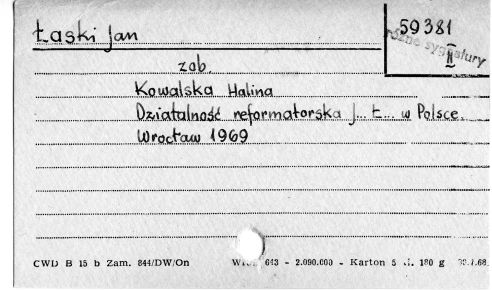 59381
II
różne sygnatury
Łaski Jan
zob.
Kowalska Halina
Działalność reformatorska J... Ł... w Polsce.
Wrocław 1969
CWD B 15 b Zam. 844/DW/On 643 - 2.090.000 - Karton 5 180 g